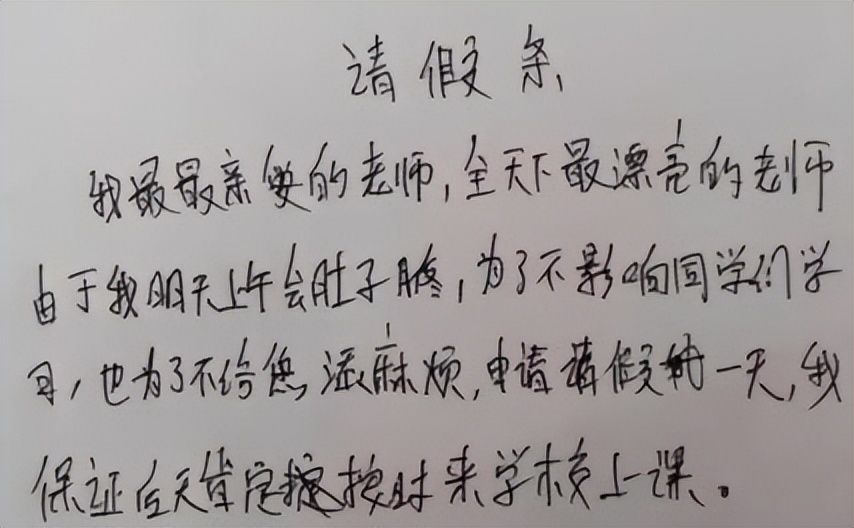 请假条
我最最亲爱的老师,全天下最漂亮的老师
由于我明天上午会肚子疼,为了不影响同学们学
习,也为了不给您添麻烦,申请请假一天,我
保证后天肯定按时来学校上课。